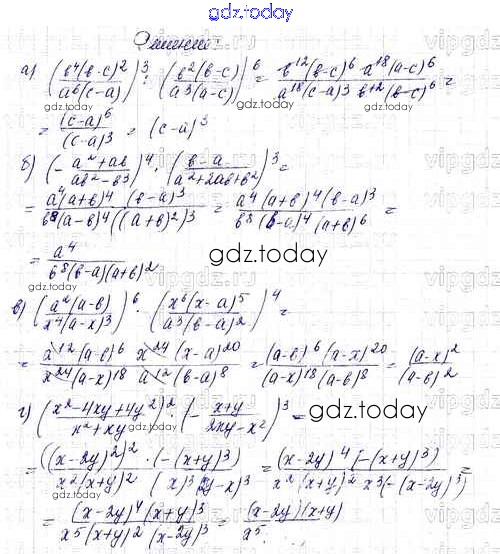 gdz.today
Решение:
а) (b⁴(b-c)²/a⁶(c-a))³ : (b²(b-c)/a³(a-c))⁶ = b¹²(b-c)⁶ a¹⁸(a-c)⁶/a¹⁸(c-a)³ b¹²(b-c)⁶ =
= (c-a)⁶/(c-a)³ = (c-a)³
б) (-a²+ab/ab²-b³)⁴ · (b-a/a²+2ab+b²)³ =
= a⁴(a+b)⁴ (b-a)³/b⁸(a-b)⁴((a+b)²)³ = a⁴(a+b)⁴(b-a)³/b⁸(b-a)⁴(a+b)⁶ =
= a⁴/b⁸(b-a)(a+b)²
gdz.today
в) (a²(a-b)/x⁴(a-x)³)⁶ · (x⁶(x-a)⁵/a³(b-a)²)⁴ =
= a¹²(a-b)⁶ x²⁴(x-a)²⁰/x²⁴(a-x)¹⁸ a¹²(b-a)⁸ = (a-b)⁶(a-x)²⁰/(a-x)¹⁸(a-b)⁸ = (a-x)²/(a-b)²
г) (x²-4xy+4y²/x²+xy)² : (-x+y/2xy-x²)³ =
gdz.today
= ((x-2y)²)² · (-(x+y)³)/x²(x+y)² (x)³(2y-x)³ = (x-2y)⁴(-(x+y)³)/x²(x+y)² x³(-(x-2y)³) =
= (x-2y)⁴(x+y)³/x⁵(x+y)²(x-2y)³ = (x-2y)(x+y)/x⁵.
gdz.today